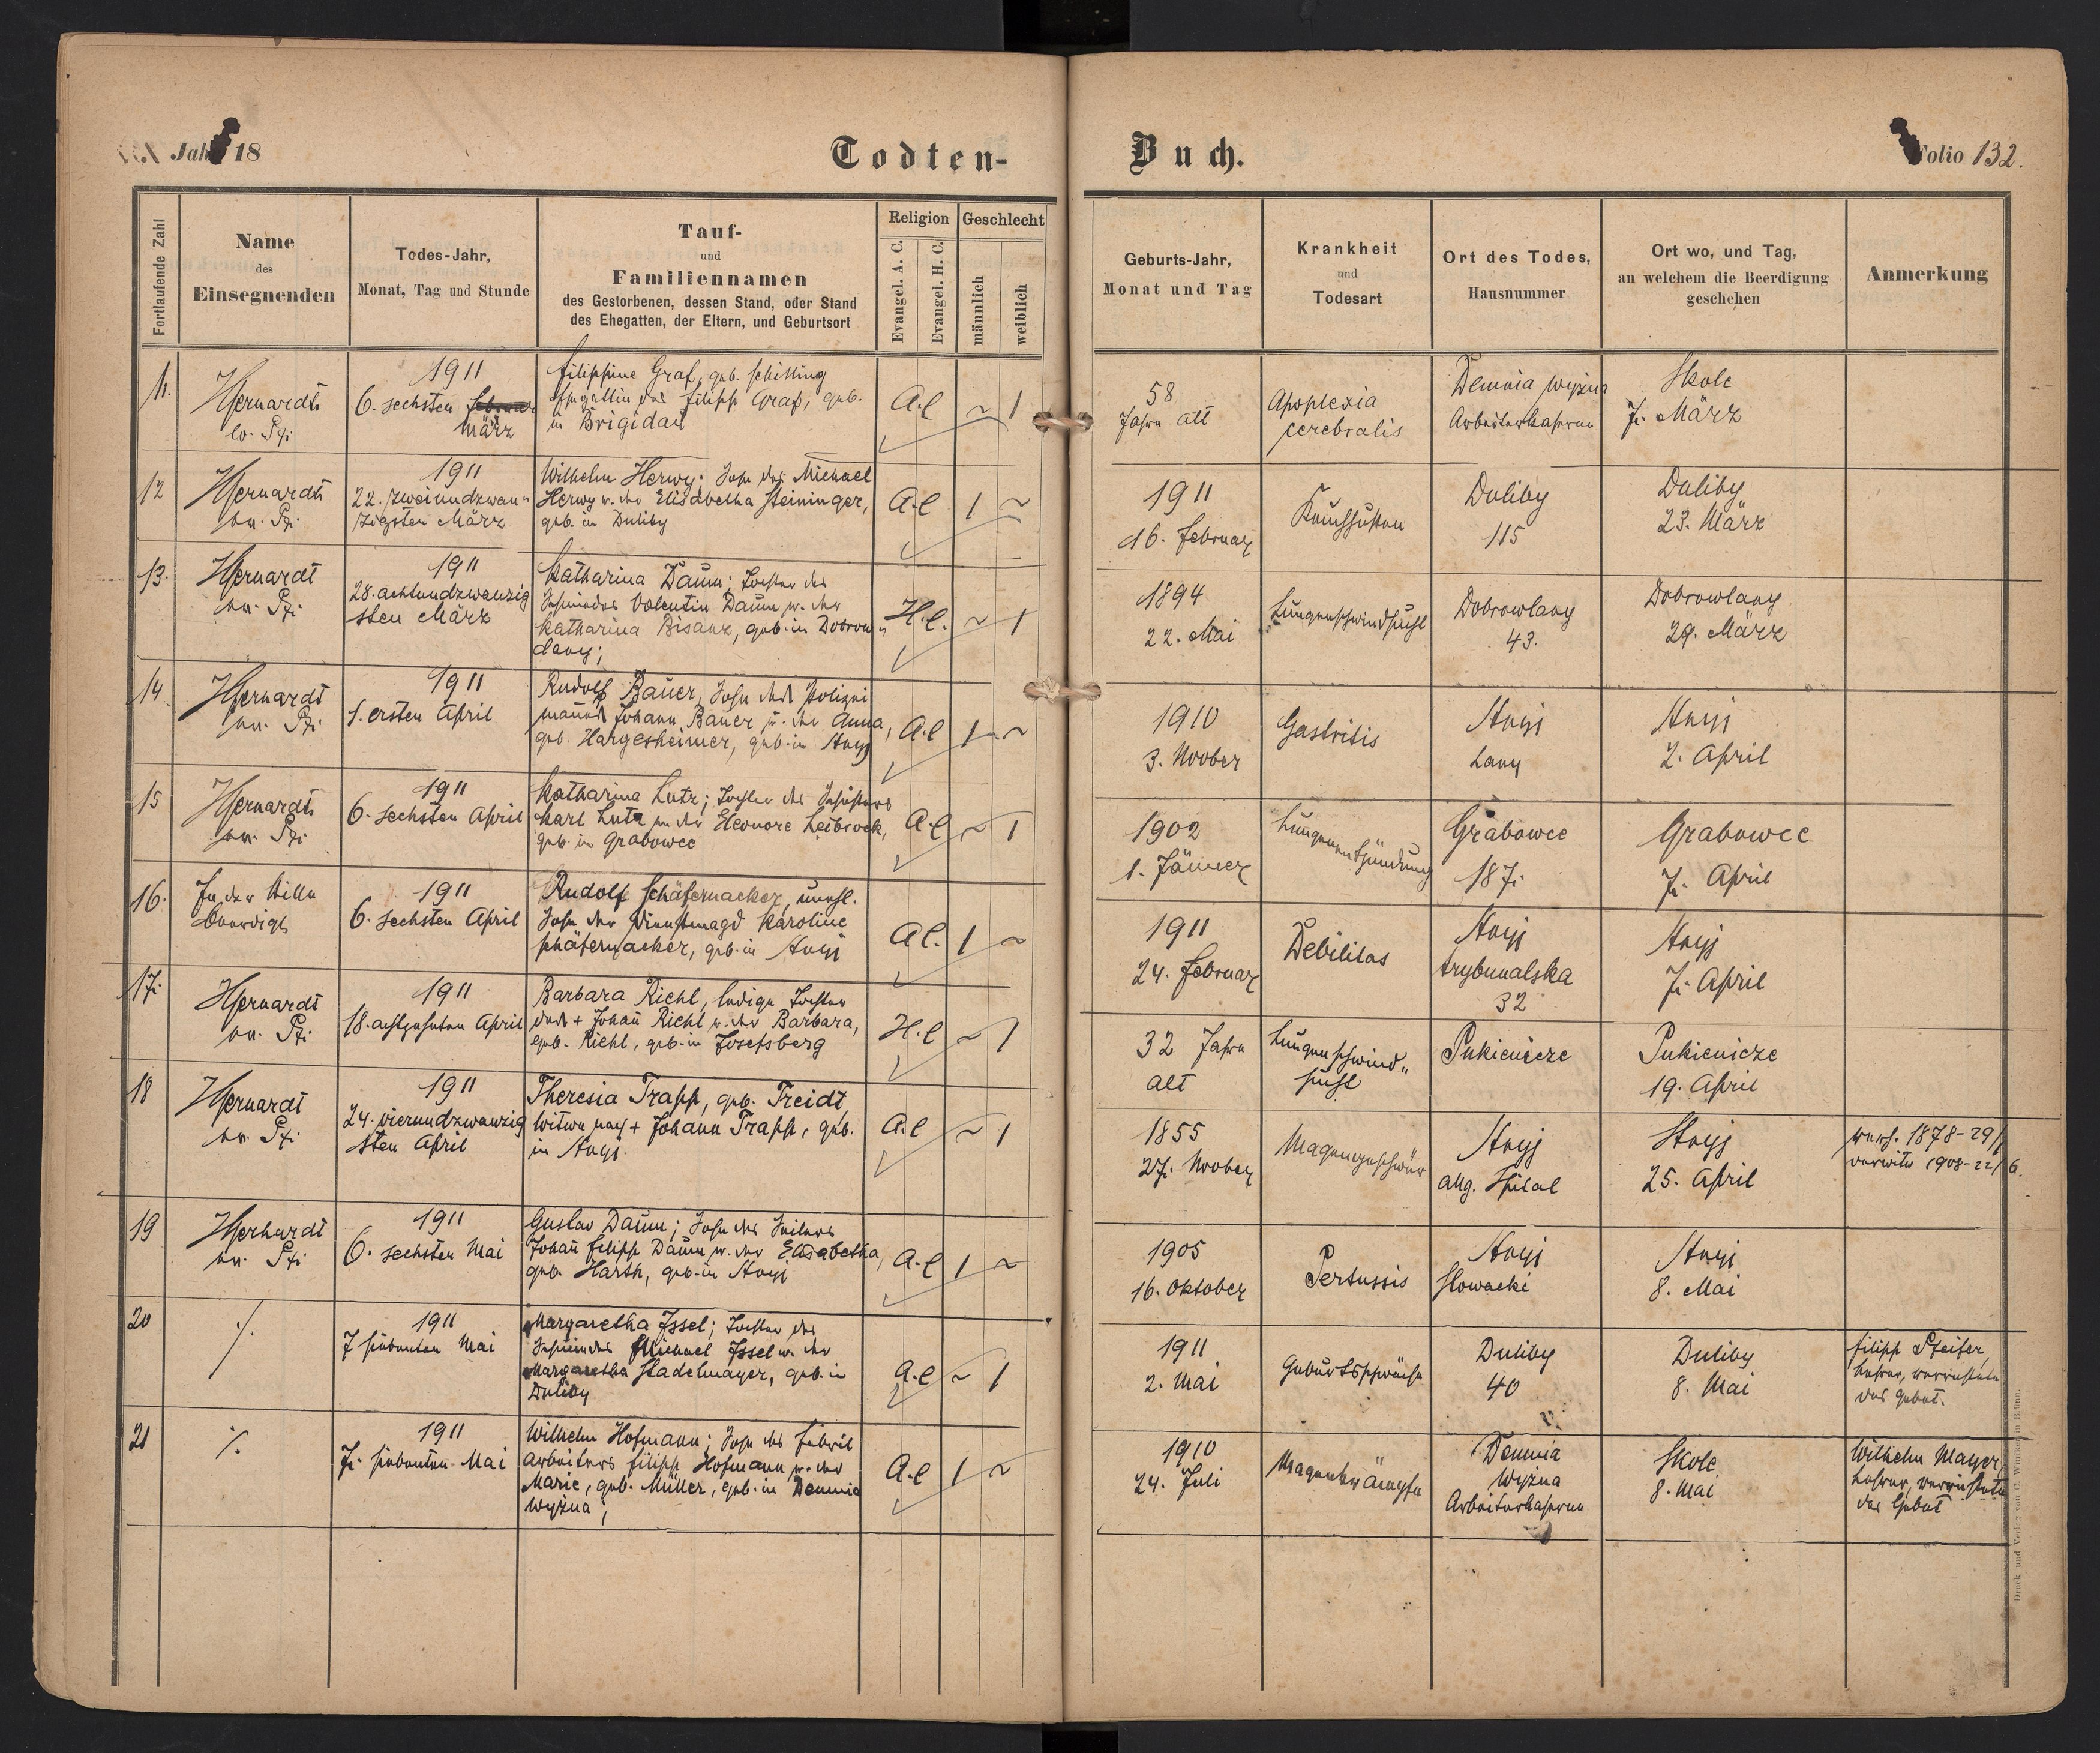 Jahr 18
Todten-
Buch.
Folio 132.
Fortlaufende Zahl
Name
des
Einsegnenden
Todes-Jahr,
Monat, Tag und Stunde
Tauf-
und
Familiennamen
des Gestorbenen, dessen Stand, oder Stand
des Ehegatten, der Eltern, und Geburtsort
Religion
Evangel. A. C.
Evangel. H. C.
Geschlecht
männlich
weiblich
Geburts-Jahr,
Monat und Tag
Krankheit
und
Todesart
Ort des Todes,
Hausnummer
Ort wo, und Tag,
an welchem die Beerdigung
geschehen
Anmerkung
11.
1911
6. sechsten Februar
März
Filippine Graf, geb. Schilling
Ehegattin des Filipp Graf, geb.
in Brigidau
A.C
1
58
Jahre alt
Apoplexia
cerebralis
Demnia wyżna
Arbeiterkaserne
Skole
7. März
12
1911
22. zweiundzwan-
zigsten März
Wilhelm Herwy; Sohn des Michael
Herwy u. der Elisabetha Steininger,
geb. in Duliby
A.C
1
1911
16. Februar
Keuchhusten
Duliby
115
Duliby
23. März
13.
1911
28. achtundzwanzig
sten März
Katharina Daum; Tochter des
Valentin Daum u. der
Katharina Bisanz, geb. in Dobrow-
lany;
H.C.
1
1894
22. Mai
Lungenschwindsucht
Dobrowlany
43.
Dobrowlany
29. März
14
1911
1. ersten April
Rudolf Bauer, Sohn des Polizei
mannes Johann Bauer u. der Anna,
geb. Hargesheimer, geb. in Stryj
A.C
1
1910
3. Novber
Gastritis
Stryj
Lany
Stryj
2. April
15
1911
6. sechsten April
Katharina Lutz; Tochter des Schusters
Karl Lutz u. der Eleonore Leibrock,
geb. in Grabowce
A.C
1
1902
1. Jänner
Lungenentzündung
Grabowce
187.
Grabowce
7. April
16.
In der Stille
beerdigt
1911
6. sechsten April
Rudolf Schäfernacker, unehl.
Sohn der Dienstmagd Karoline
Schäfernacker, geb. in Stryj
A.C.
1
1911
24. Februar
Debilitas
Stryj
trybunalska
32
Stryj
7. April
17.
1911
18. achtzehnten April
Barbara Riehl, ledige Tochter
des + Johann Riehl u. der Barbara,
geb. Riehl, geb. in Josefsberg
H.C
1
32 Jahre
alt
Lungenschwind-
sucht
Pukienicze
Pukienicze
19. April
18
1911
24. vierundzwanzig
sten April
Theresia Trapp, geb. Treidt,
Witwe nach + Johann Trapp, geb.
in Stryj
A.C
1
1855
27. Novber
Magengeschwür
Stryj
allg. Spital
Stryj
25. April
1878-29/
verwitw 1908-22/6.
19
1911
6. sechsten Mai
Gustav Daum; Sohn des Seilers
Johann Filipp Daum u. der Elisabetha,
geb. Harth, geb. in Stryj
A.C
1
1905
16. Oktober
Pertussis
Stryj
Slowacki
Stryj
8. Mai
20
1911
7 siebenten Mai
Margaretha Issel; Tochter des
Michael Issel u. der
Margaretha Stadelmayer, geb. in
Duliby
A.C
1
1911
2. Mai
Geburtsschwäche
Duliby
40
Duliby
8. Mai
Filipp Pfeifer,
Lehrer, verrichtete
das Gebet.
21
1911
7. siebenten Mai
Wilhelm Hofmann; Sohn des Fabrik
arbeiters Filipp Hofmann u. der
Marie, geb. Müller, geb. in Demnia
wyżna;
A.C
1
1910
24. Juli
Magenkrämpfe
Demnia
wyżna
Arbeiterkaserne
Skole
8. Mai
Wilhelm Mayer,
Lehrer, verrichtete
das Gebet